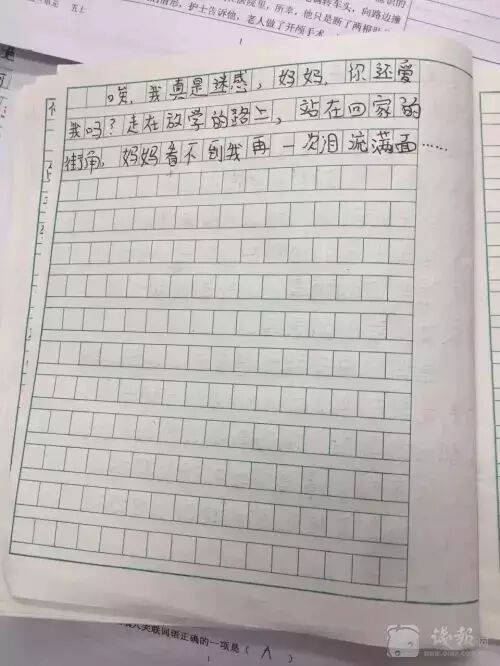 护士告诉他,老人做了开颅手术
唉,我真是迷惑,妈妈,你还爱
我吗?走在放学的路上,站在回家的
街角,妈妈看不到我再一次泪流满面……
同语正确的一项是( A )
钱报